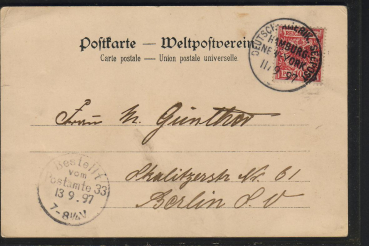 Postkarte — Weltpostverein
Carte postale — Union postale universelle.
DEUTSCH-AMERIK. SEEPOST
HAMBURG-
NEW-YORK
11/9.97
Frau M. Günther
Skalitzerstr. Nr. 61
Berlin S.O.
Bestellt
vom
Postamte 33
13 9.97
7-8 V.